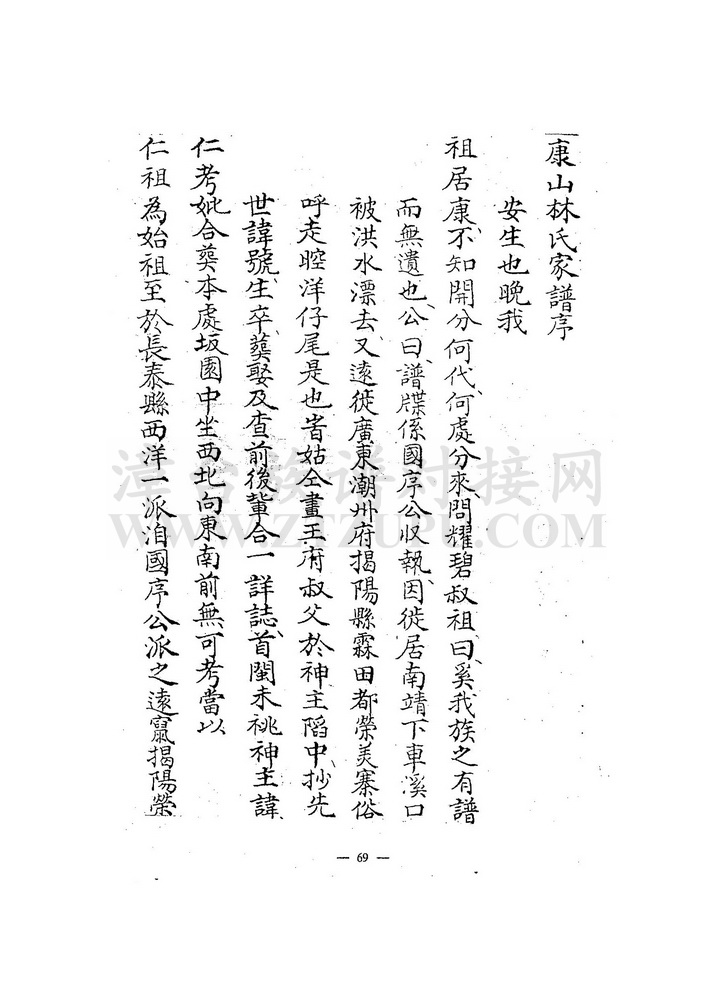 康山林氏家譜序
安生也晚我
祖居康不知開分何代何處分來問耀碧叔祖曰奚我族之有譜
而無遺也公曰譜牒係國序公收執因徙居南靖下車溪口
被洪水漂去又遠徙廣東潮州府揭陽縣霖田都榮美寨俗
呼走腔洋仔尾是也耑姑仝畫王府叔父於神主䧟中抄先
世諱號生卒葬娶及查前後輩合一詳誌首閩未祧神主諱
仁考妣合葬本處坂園中坐西北向東南前無可考當以
仁祖為始祖至於長泰縣西洋一派洎國序公派之遠竄揭陽榮
— 69 —
漳台族谱对接网
WWW.ZTZUPU.COM